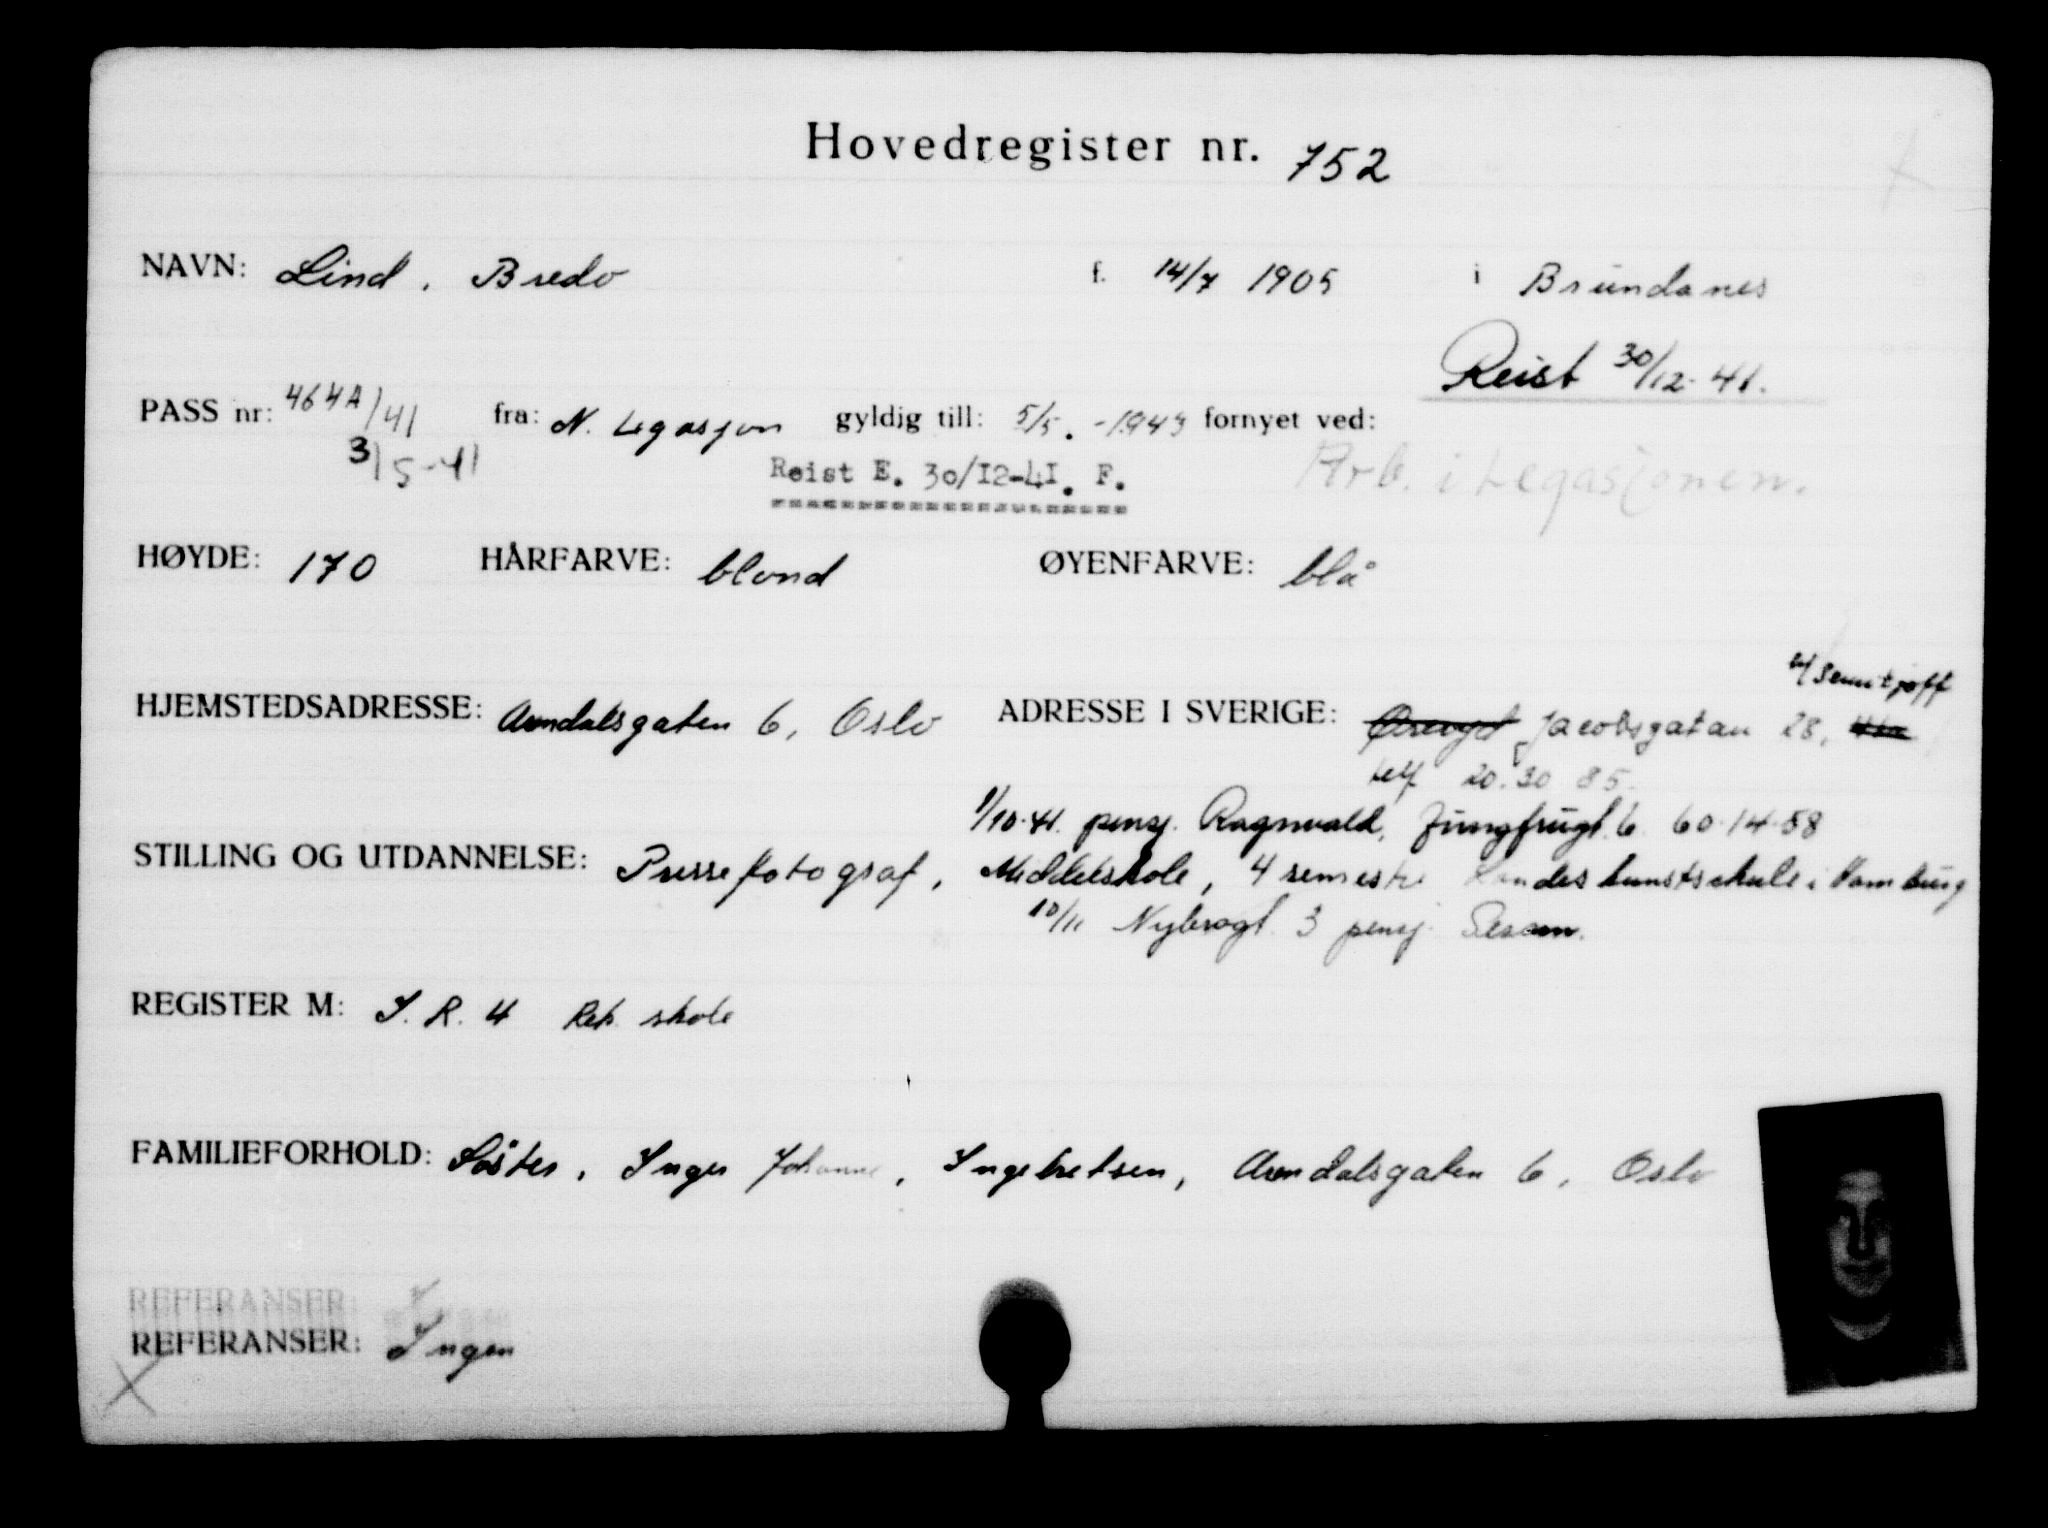 Hovedregister nr. 752
NAVN: Lind, Bredo f. 14/7 1905 i Brundanes
Reist 30/12-41.
PASS nr: 464A/41 fra: N. Legasjon gyldig till: 5/5. -1943 fornyet ved:
3/5-41 Reist E. 30/12-41. F. Arb. i Legasjonen.
HØYDE: 170 HÅRFARVE: blond ØYENFARVE: blå
HJEMSTEDSADRESSE: Arendalsgaten 6, Oslo ADRESSE I SVERIGE: Jacobsgatan 28,
telf 20.30 85.
1/10-41. pensj. Ragnvald, Jungfrugt. 6 60-14-58
STILLING OG UTDANNELSE: Pressefotograf, Middelskole, 4 semestre Landeskunstschule i Hamburg
10/11 Nybrogt. 3 pensj.
REGISTER M: I. R. 4 Rek. skole
FAMILIEFORHOLD: Søster, Inger Johanne, Ingebretsen, Arendalsgaten 6, Oslo
REFERANSER:
REFERANSER: Ingen